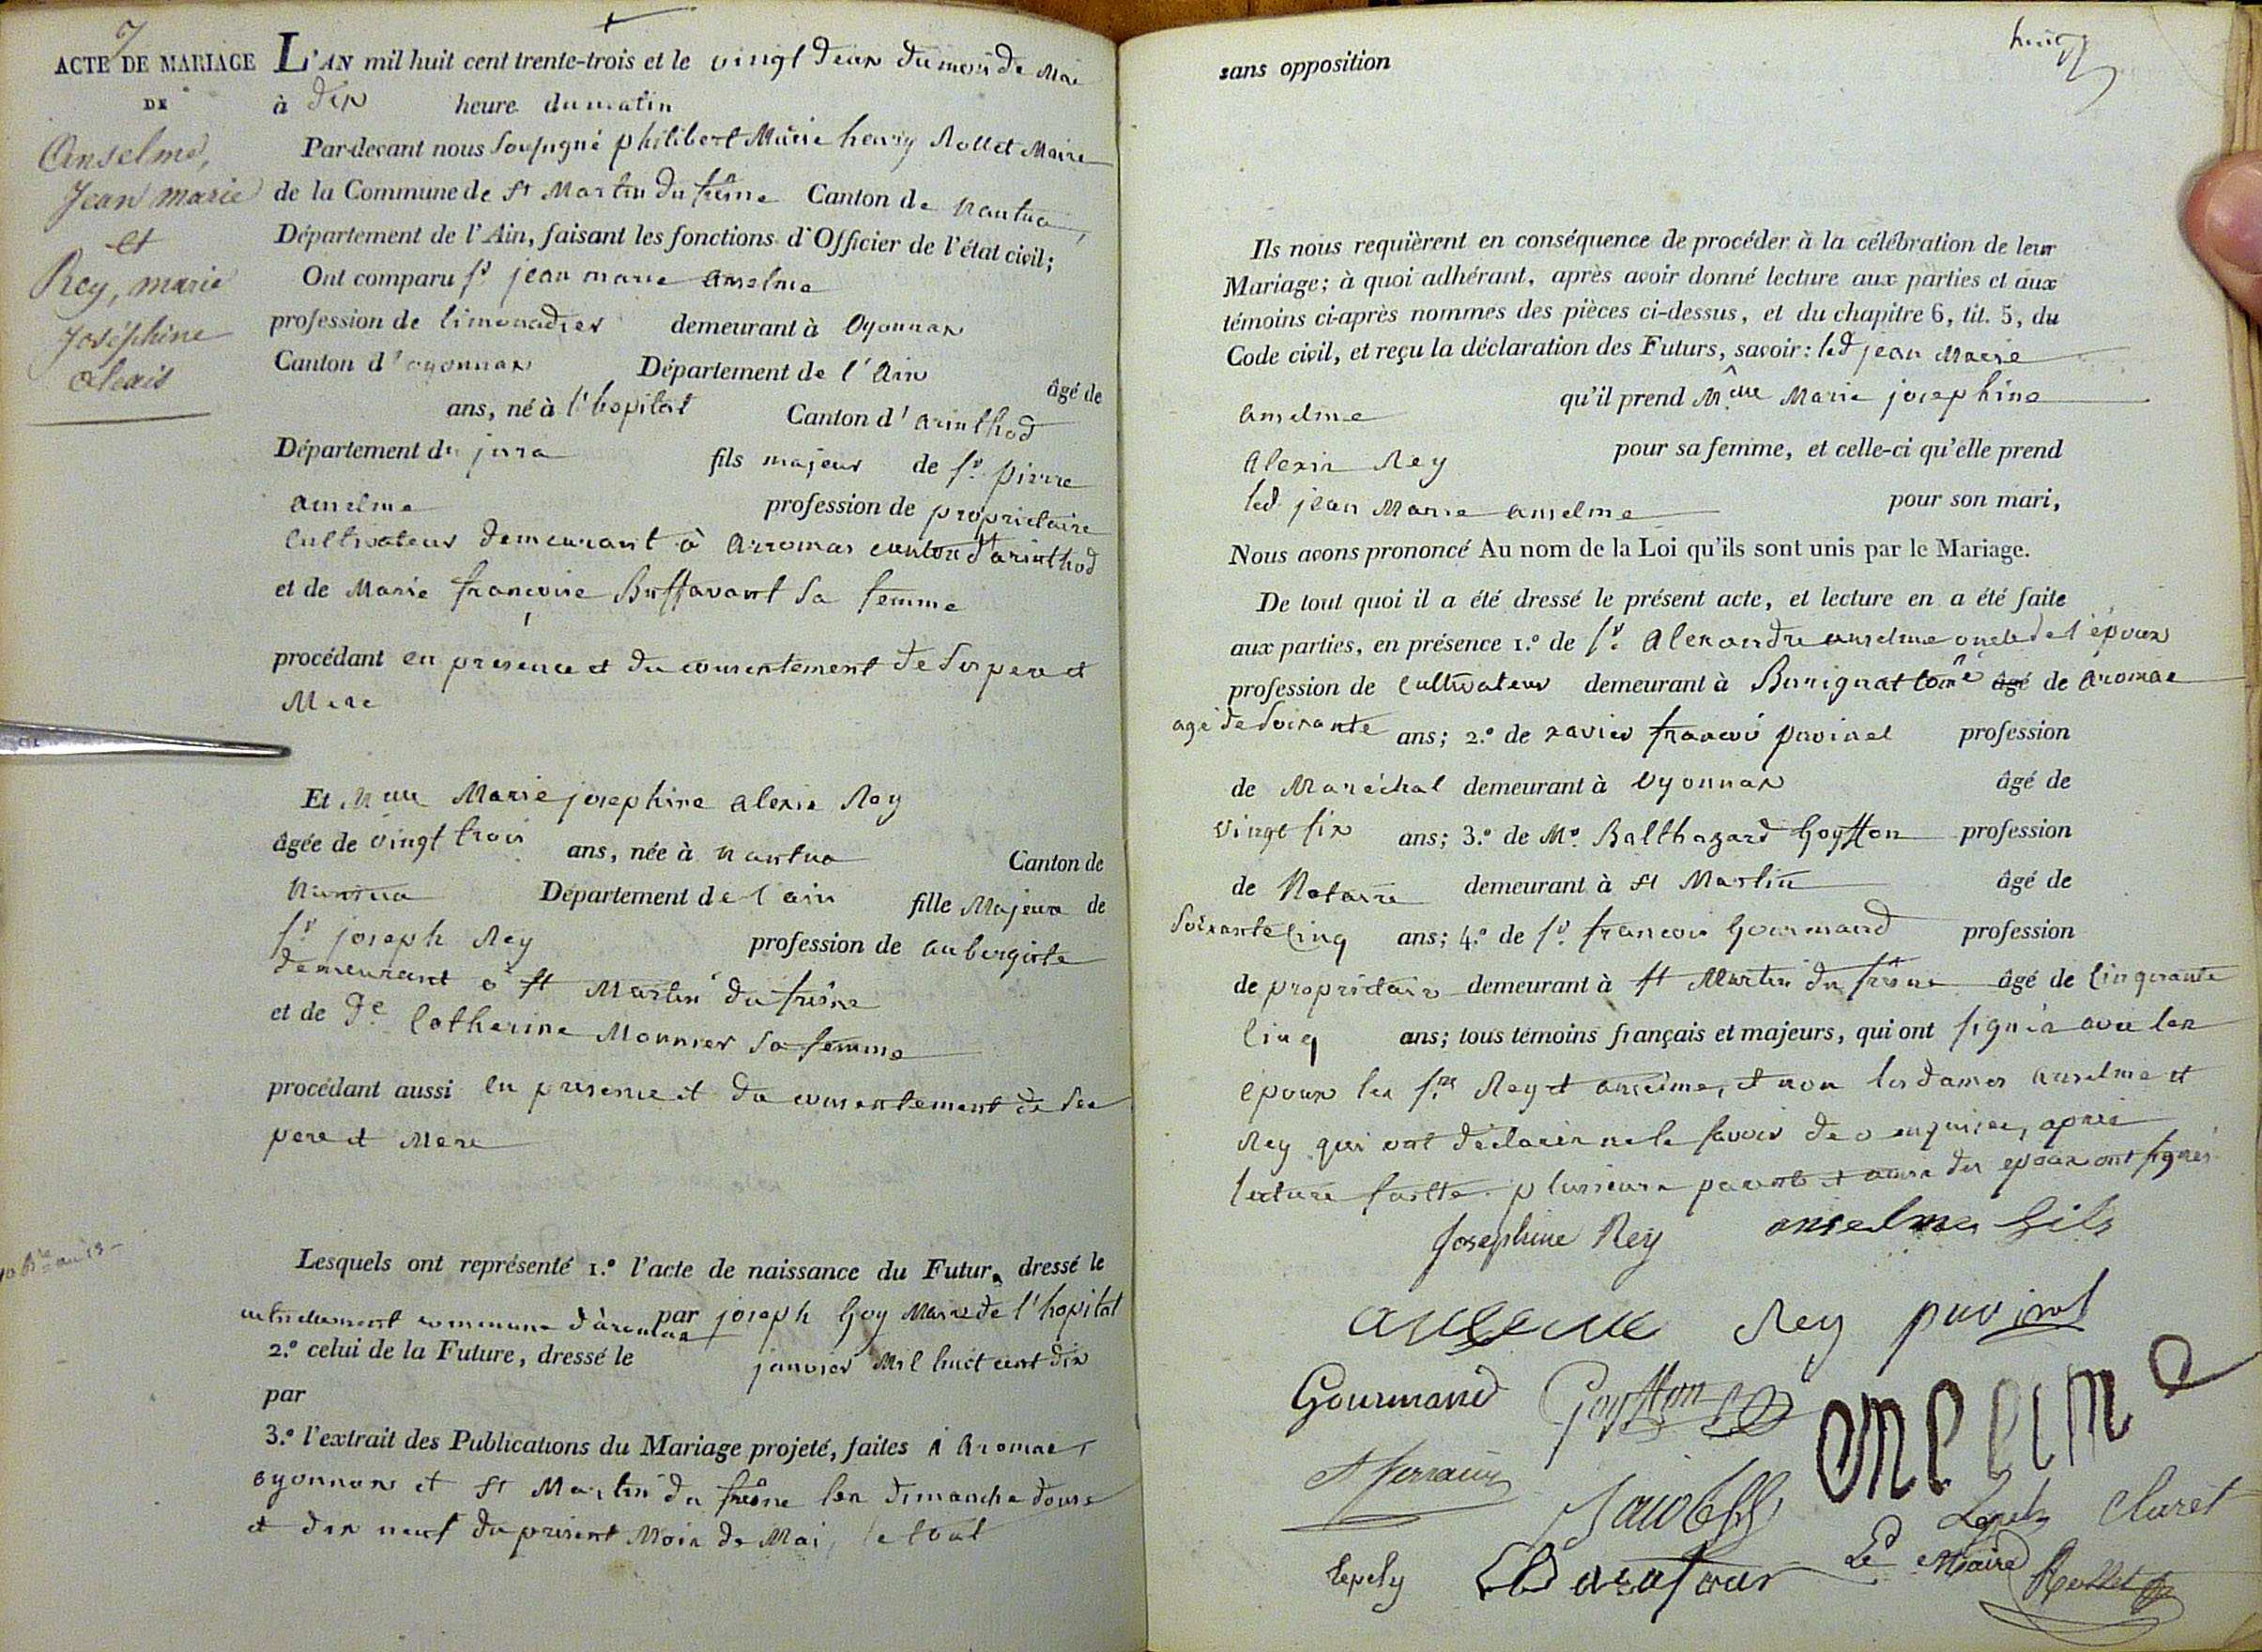 7
ACTE DE MARIAGE
DE
Anselme,
Jean marie
et
Rey, marie
Joséphine
alexis
L'AN mil huit cent trente-trois et le vingt deux du mois de Mai
à dix heure du matin
Par-devant nous soussigné philibert Marie henry Rollet Maire
de la Commune de St Martin du fresne Canton de nantua,
Département de l'Ain, faisant les fonctions d'Officier de l'état civil;
Ont comparu sr jean marie anselme
profession de limonadier demeurant à Oyonnax
Canton d'oyonnax Département de l'Ain âgé de
ans, né à l'hopital Canton d'arinthod
Département du jura fils majeur de sr. pierre
anselme profession de propriétaire
cultivateur demeurant à arromas canton d'arinthod
et de Marie françoise Buffavant sa femme
procédant en présence et du consentement de ses pere et
Mere
Et Melle Marie josephine alexis Rey
âgée de vingt trois ans, née à nantua Canton de
Nantua Département de l'ain fille Majeure de
sr joseph Rey profession de aubergiste
demeurant à st Martin du fresne
et de de Catherine Monnier sa femme
procédant aussi en présence et du consentement de ses
pere et Mere
Lesquels ont représenté 1.º l'acte de naissance du Futur, dressé le
par joseph Goy Maire de l'hopital
commune d'
2.º celui de la Future, dressé le janvier Mil huit cent dix
par
3.º l'extrait des Publications du Mariage projeté, faites à Aromas,
oyonnax et st Martin du fresne les dimanche douze
et dix neuf du présent Mois de Mai, le tout
sans opposition
Ils nous requièrent en conséquence de procéder à la célébration de leur
Mariage; à quoi adhérant, après avoir donné lecture aux parties et aux
témoins ci-après nommés des pièces ci-dessus, et du chapitre 6, tit. 5, du
Code civil, et reçu la déclaration des Futurs, savoir: led jean Marie
anselme qu'il prend Melle Marie josephine
alexis Rey pour sa femme, et celle-ci qu'elle prend
led jean Marie anselme pour son mari,
Nous avons prononcé Au nom de la Loi qu'ils sont unis par le Mariage.
De tout quoi il a été dressé le présent acte, et lecture en a été faite
aux parties, en présence 1.º de sr. Alexandre anselme oncle de l'époux
profession de cultivateur demeurant à Burignat comne âgé de aromas
agé de soixante ans; 2.º de xavier françois puvinel profession
de Maréchal demeurant à Oyonnax âgé de
vingt six ans; 3.º de Me. Balthazard Goyffon profession
de Notaire demeurant à st Martin âgé de
soixante cinq ans; 4.º de sr. françois Gourmand profession
de propriétaire demeurant à st Martin du fresne âgé de cinquante
cinq ans; tous témoins français et majeurs, qui ont signés avec les
époux les srs Rey et anselme, et non les dames anselme et
Rey qui ont déclarés ne le savoir de ce enquises, après
lecture faitte. plusieurs parents et amis des epoux ont signés.
Josephine Rey anselme fils
anselme Rey puvinel
Gourmand Goyffon
anselme
Claret
Le Maire Rollet